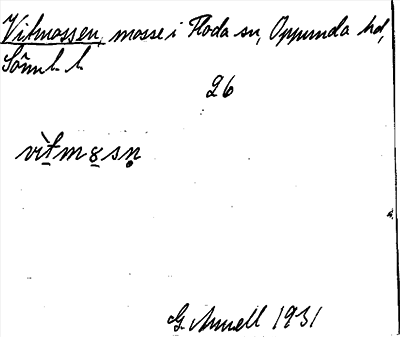 Vitmossen, mosse i Floda sn, Oppunda hd,
Sörml. l.
26
vìtmɞsn̥
G. Arnell 1931